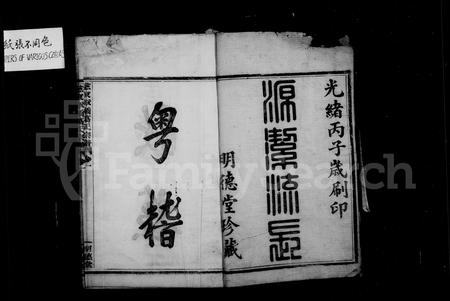 紙張不同色
PAPERS OF VARIOUS COLORS
光緒丙子歲刷印
源潔流長
明德堂珍藏
粤稽
FamilySearch